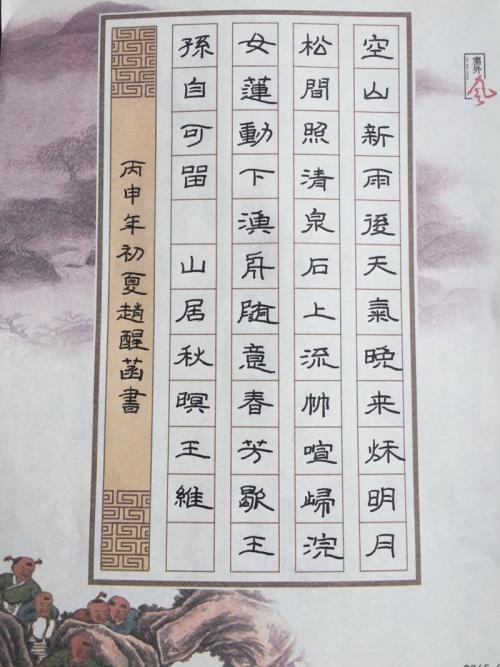 塞外风
空山新雨後天氣晚来秋明月
松間照清泉石上流竹喧歸浣
女蓮動下漁舟隨意春芳歇王
孫自可留 山居秋暝王維
丙申年初夏趙醒菡書